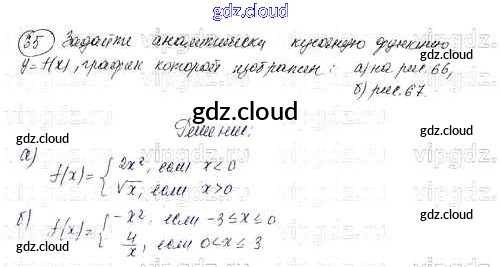 gdz.cloud
35 Задайте аналитически кусочную функцию
y=f(x), график которой изображен: а) на рис. 66,
б) рис. 67.
gdz.cloud
gdz.cloud
Решение:
а)
gdz.cloud
f(x)= { 2x², если x<0
√x, если x>0
gdz.cloud
б) f(x)= { -x², если -3≤x≤0
4/x, если 0<x≤3
gdz.cloud
gdz.cloud